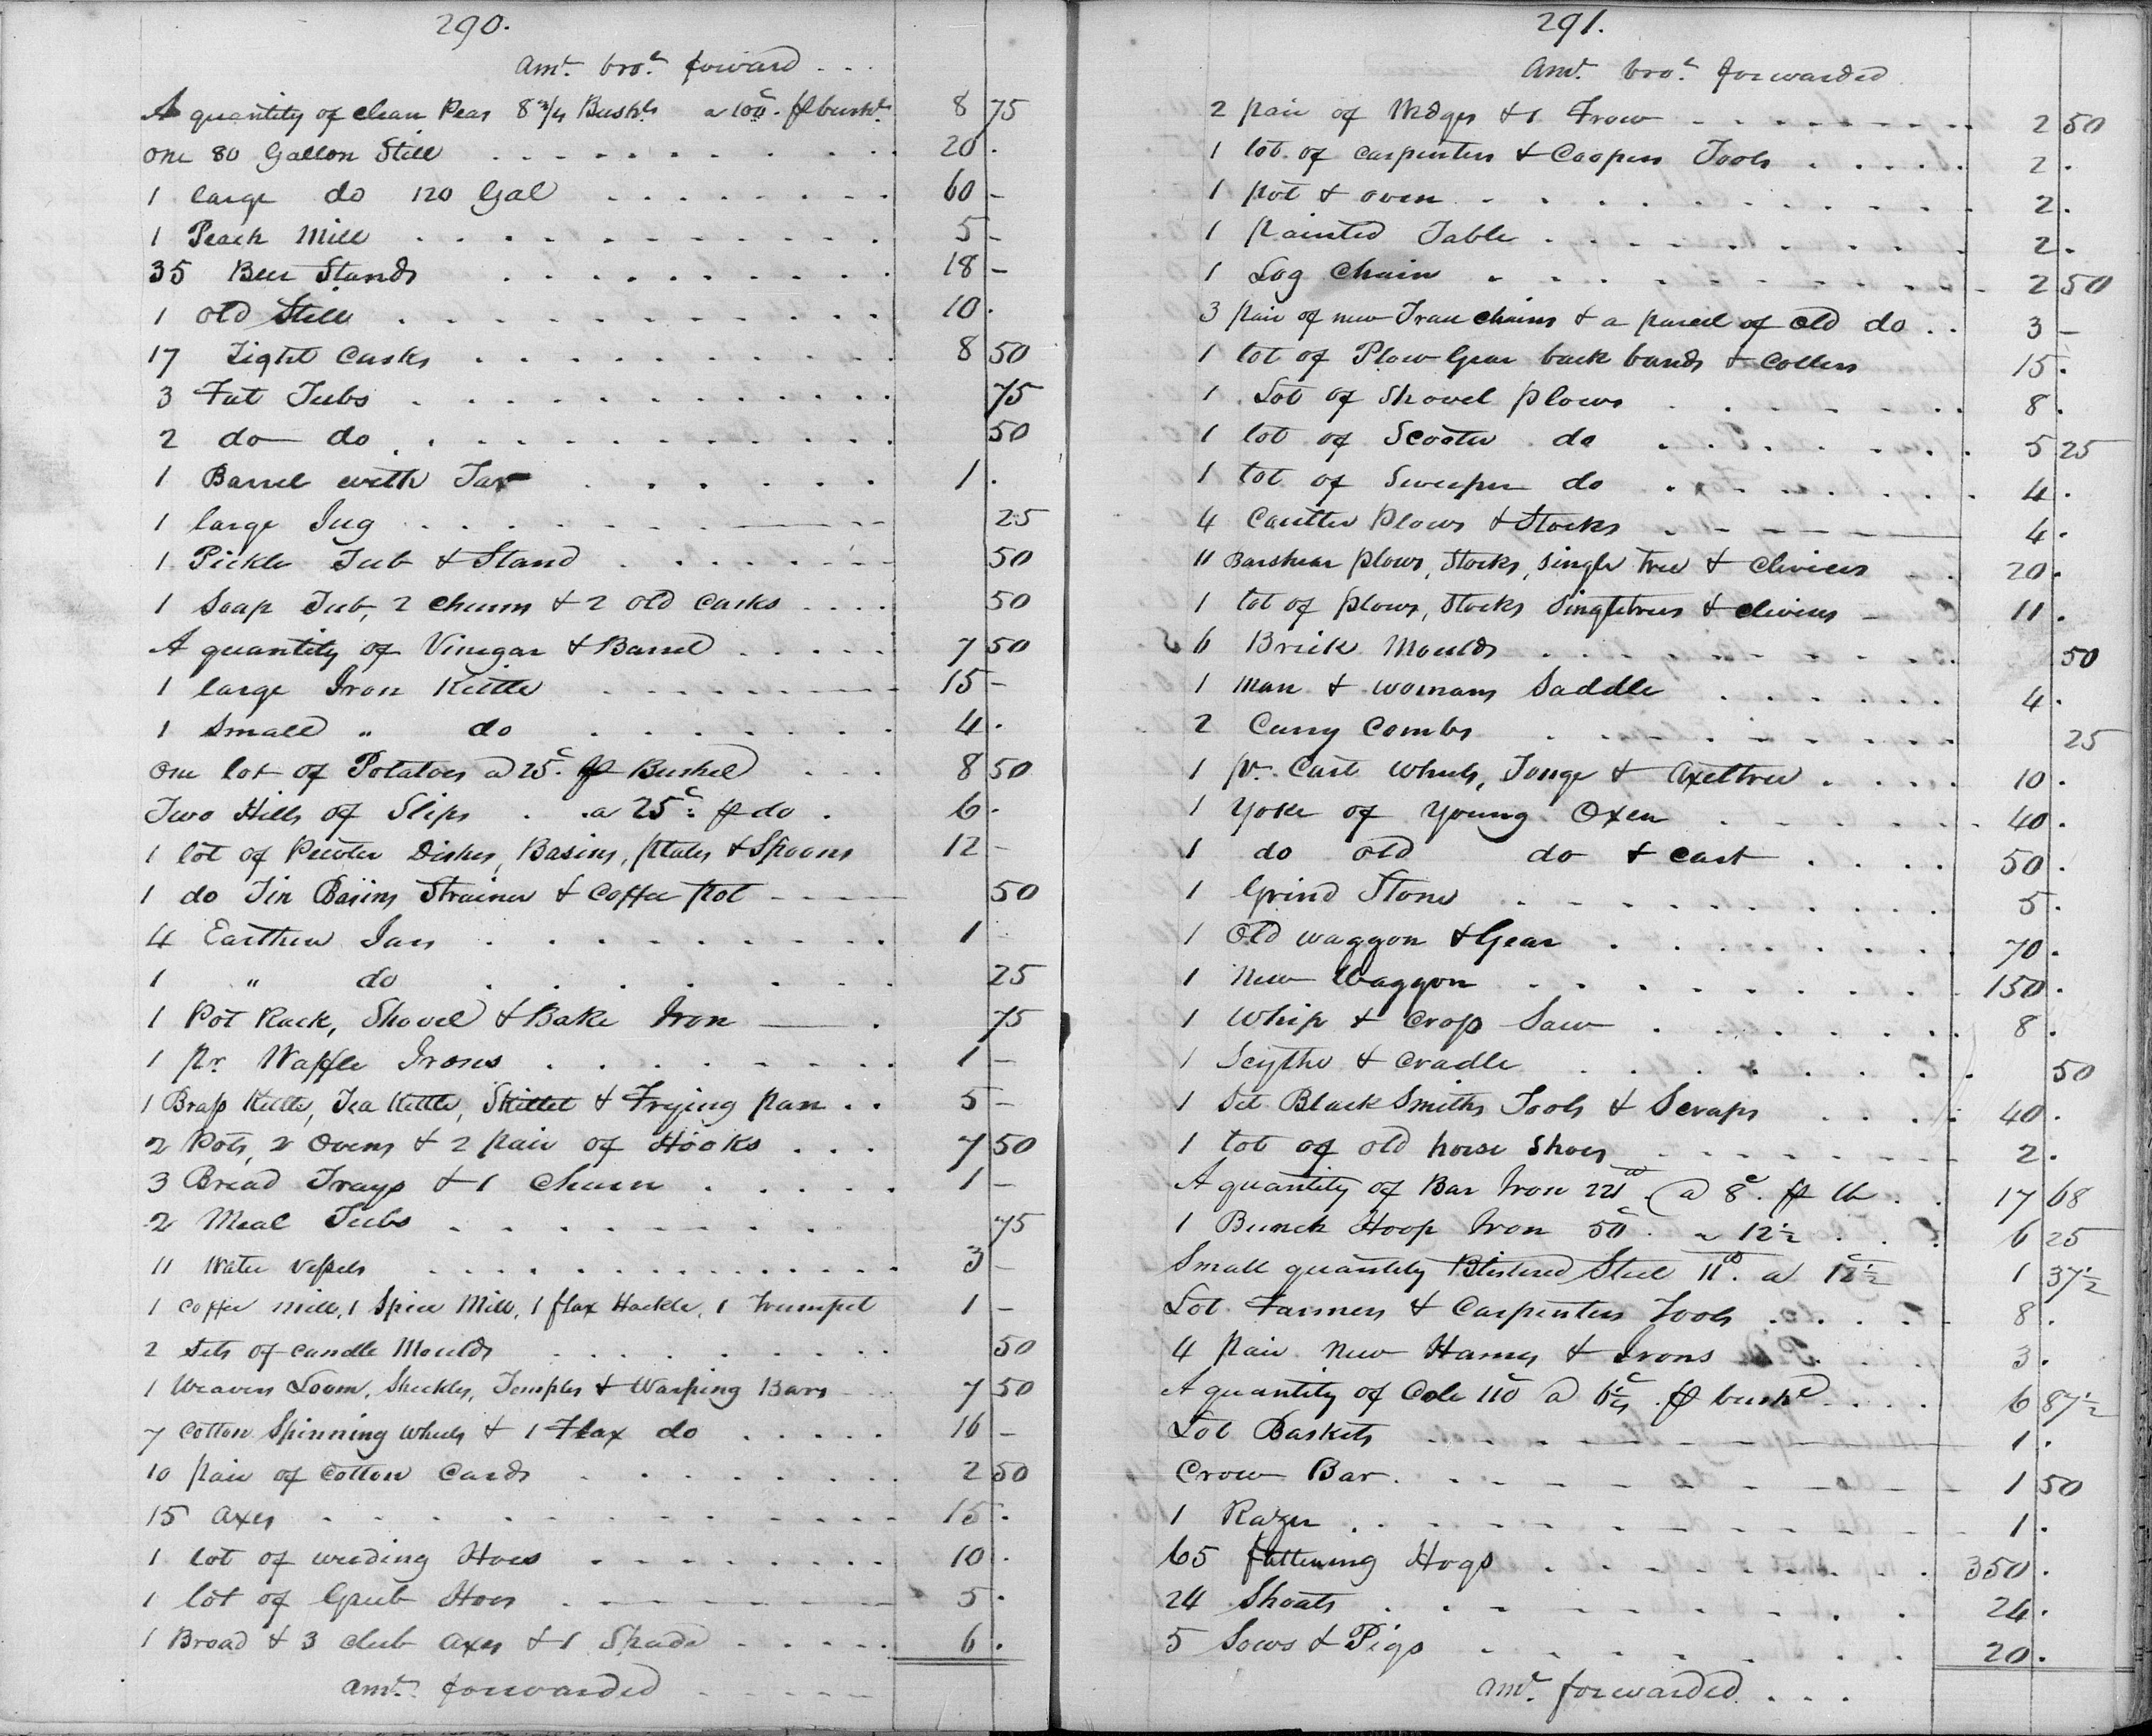 290.
Amt. brot. forward
A quantity of clean Peas 8 3/4 Bushls a 100c. ℔ bushl. 8 75
One 80 Gallon Still 20
1 large do 120 Gal 60
1 Peach Mill 5
35 Beer Stands 18
1 old Still 10
17 Tight Casks 8 50
3 Fat Tubs 75
2 do do 50
1 Barrel with Tar 1
1 large Jug 25
1 Pickle Tub & Stand 50
1 Soap Tub, 2 churns & 2 old Casks 50
A quantity of Vinegar & Barrel 7 50
1 large Iron Kettle 15
1 Small " do 4
One lot of Potatoes a 25c. ℔ Bushel 8 50
Two Hills of Slips a 25c. ℔ do 6
1 lot of Pewter Dishes, Basins, plates & Spoons 12
1 do Tin Basins Strainer & Coffee pot 50
4 Earthen Jars 1
1 " do 25
1 Pot Rack, Shovel & Bake Iron 75
1 pr. Waffle Irons 1
1 Brass Kettle, Tea Kettle, Skillet & Frying pan 5
2 Pots, 2 Ovens & 2 pair of Hooks 7 50
3 Bread Trays & 1 Churn 1
2 Meal Tubs 75
11 Water Vessels 3
1 Coffee mill, 1 Spice Mill, 1 flax Hackle, 1 Trumpet 1
2 Sets of candle Moulds 50
1 Weavers Loom, Shuckles, Temples & Warping Bars 7 50
7 Cotton Spinning Wheels & 1 Flax do 16
10 pair of Cotton Cards 2 50
15 Axes 15
1 lot of weeding Hoes 10
1 lot of Grub Hoes 5
1 Broad & 3 club axes & 1 Spade 6
Amt. forwarded
291.
Amt. brot. forwarded
2 pair of Wedges & 1 Frow 2 50
1 lot of carpenters & Coopers Tools 2
1 pot & oven 2
1 painted Table 2
1 Log Chain 2 50
3 pair of new Trace chains & a parcel of old do 3
1 lot of Plow Gear back bands & Collers 15
1 Lot of Shovel plows 8
1 lot of Scooter do 5 25
1 lot of Sweeper do 4
4 Coulter Plows & Stocks 4
11 Barshear plows, Stocks, Single tree & clivices 20
1 lot of plows, Stocks Singletrees & clivices 11
6 Brick Moulds 50
1 man & womans Saddle 4
2 Curry Combs 25
1 pr. Cart Wheels, Tonge & Axeltree 10
1 Yoke of Young Oxen 40
1 do old do & cart 50
1 Grind Stone 5
1 Old waggon & Gear 70
1 New Waggon 150
1 Whip & Crop Saw 8
1 Scythe & Cradle 50
1 Set Black Smiths Tools & Scraps 40
1 lot of old horse Shoes 2
A quantity of Bar Iron 221 lb. @ 8c. ℔ lb 17 68
1 Bunch Hoop Iron 50 a 12 1/2c 6 25
Small quantity Blistered Steel 11lb. a 12 1/2c 1 37 1/2
Lot Farmers & Carpenters Tools 8
4 pair New Hames & Irons 3
A quantity of Cole 110 a 6 1/4c. ℔ bushl 6 87 1/2
Lot Baskets 1
Crow Bar 1 50
1 Razer 1
65 fattening Hogs 350
24 Shoats 24
5 Sows & Pigs 20
Amt. forwarded